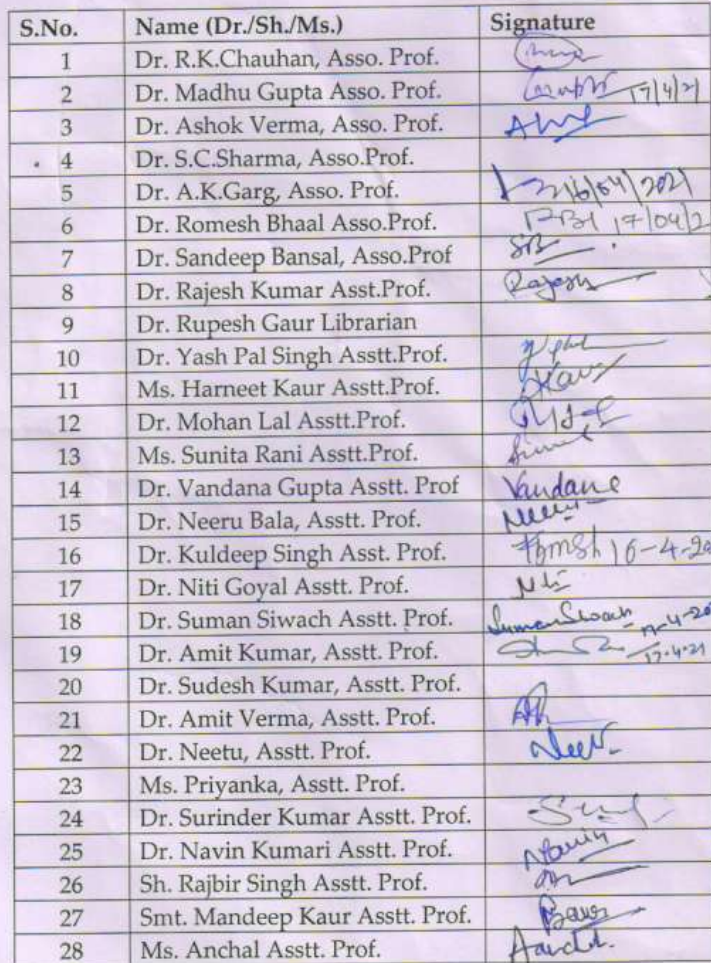 S.No. Name (Dr./Sh./Ms.) Signature
1 Dr. R.K.Chauhan, Asso. Prof.
2 Dr. Madhu Gupta Asso. Prof. 17/4/21
3 Dr. Ashok Verma, Asso. Prof.
4 Dr. S.C.Sharma, Asso.Prof.
5 Dr. A.K.Garg, Asso. Prof. 16/04/2021
6 Dr. Romesh Bhaal Asso.Prof. 17/04/2
7 Dr. Sandeep Bansal, Asso.Prof SB
8 Dr. Rajesh Kumar Asst.Prof. Rajesh
9 Dr. Rupesh Gaur Librarian
10 Dr. Yash Pal Singh Asstt.Prof.
11 Ms. Harneet Kaur Asstt.Prof. HKaur
12 Dr. Mohan Lal Asstt.Prof.
13 Ms. Sunita Rani Asstt.Prof.
14 Dr. Vandana Gupta Asstt. Prof Vandana
15 Dr. Neeru Bala, Asstt. Prof. Neeru
16 Dr. Kuldeep Singh Asst. Prof. 16-4-20
17 Dr. Niti Goyal Asstt. Prof. Niti
18 Dr. Suman Siwach Asstt. Prof. Suman Siwach 17-4-20
19 Dr. Amit Kumar, Asstt. Prof. 17.4.21
20 Dr. Sudesh Kumar, Asstt. Prof.
21 Dr. Amit Verma, Asstt. Prof.
22 Dr. Neetu, Asstt. Prof.
23 Ms. Priyanka, Asstt. Prof.
24 Dr. Surinder Kumar Asstt. Prof.
25 Dr. Navin Kumari Asstt. Prof. Navin
26 Sh. Rajbir Singh Asstt. Prof.
27 Smt. Mandeep Kaur Asstt. Prof.
28 Ms. Anchal Asstt. Prof.